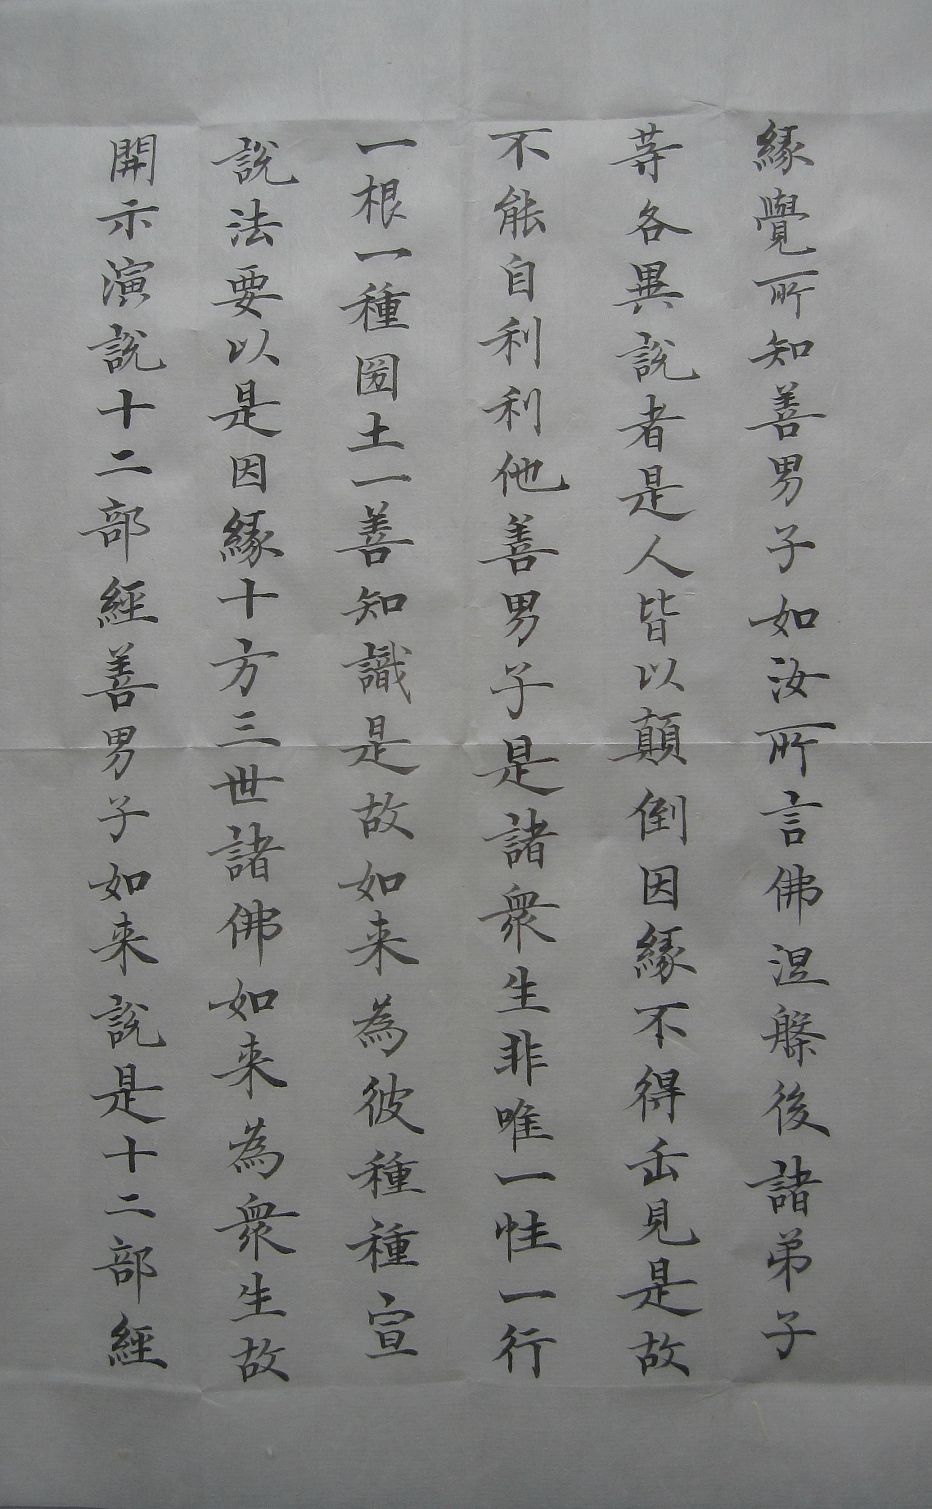 緣覺所知善男子如汝所言佛涅槃後諸弟子
等各異說者是人皆以顛倒因緣不得正見是故
不能自利利他善男子是諸衆生非唯一性一行
一根一種国土一善知識是故如来為彼種種宣
說法要以是因緣十方三世諸佛如来為衆生故
開示演說十二部經善男子如来說是十二部經